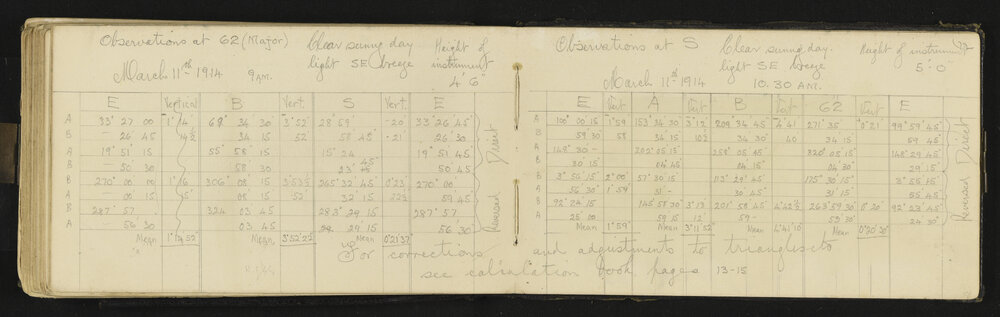 Observations at 62 (Major) Clear sunny day Height of
light SE breeze instrument
March 11th 1914 9 A.M. 4' 6"
E Vertical B Vert. S Vert. E
A 33° 27 00 34 30 3°52 28° 59' -20 33° 26 45
B - 26 45 34 15 52 58 45 .21 26 30
A 19° 51 15 55° 58 15 15° 24 19° 51 45
B 50 30 58 30 50 45
B 270° 00 00 306° 08 15 265° 32 45 0°23 270° 00
A 00 15 08 15 52 32 15 59 45
B 287° 57 324 03 45 283° 29 15 287° 57
A - 56 30 03 45 29 15 56 30
Mean Mean 3°52' Mean 0°21'37"
Direct
Reversed
For corrections
see calculation
Observations at S Clear sunny day. Height of instrument
light SE breeze 5' 0"
March 11th 1914 10.30 A.M.
E Vert A Vert B Vert 62 Vert E
A 100° 00 15 1°59 153° 34 30 3°12 209° 34 45 4°41 271° 35' 0°21 99° 59' 45"
B 59 30 58 34 15 34 30 40 34 15 59 45
A 148° 30 - 202° 05 15 258° 05 15 320° 05 15 148° 29 45
B 30 15 04 45 04 15 04 30 29 15
B 3° 56 15 2°00 57° 30 15 113° 29' 45" 175° 30' 15" 3° 55 45
A 56 30 1°59 31 - 30 45 31 15 55 45
B 92° 24 15 145° 58 30 3°13 201° 58 45 263° 59 30 0°20 92° 23' 45"
A 25 00 59 15 12 59 - 59 30 24 30
Mean 1°59' Mean 3°11'52 Mean 4°41'10 Mean 0°20'30"
Direct
Reversed
and adjustments to triangles etc
book pages 13-15